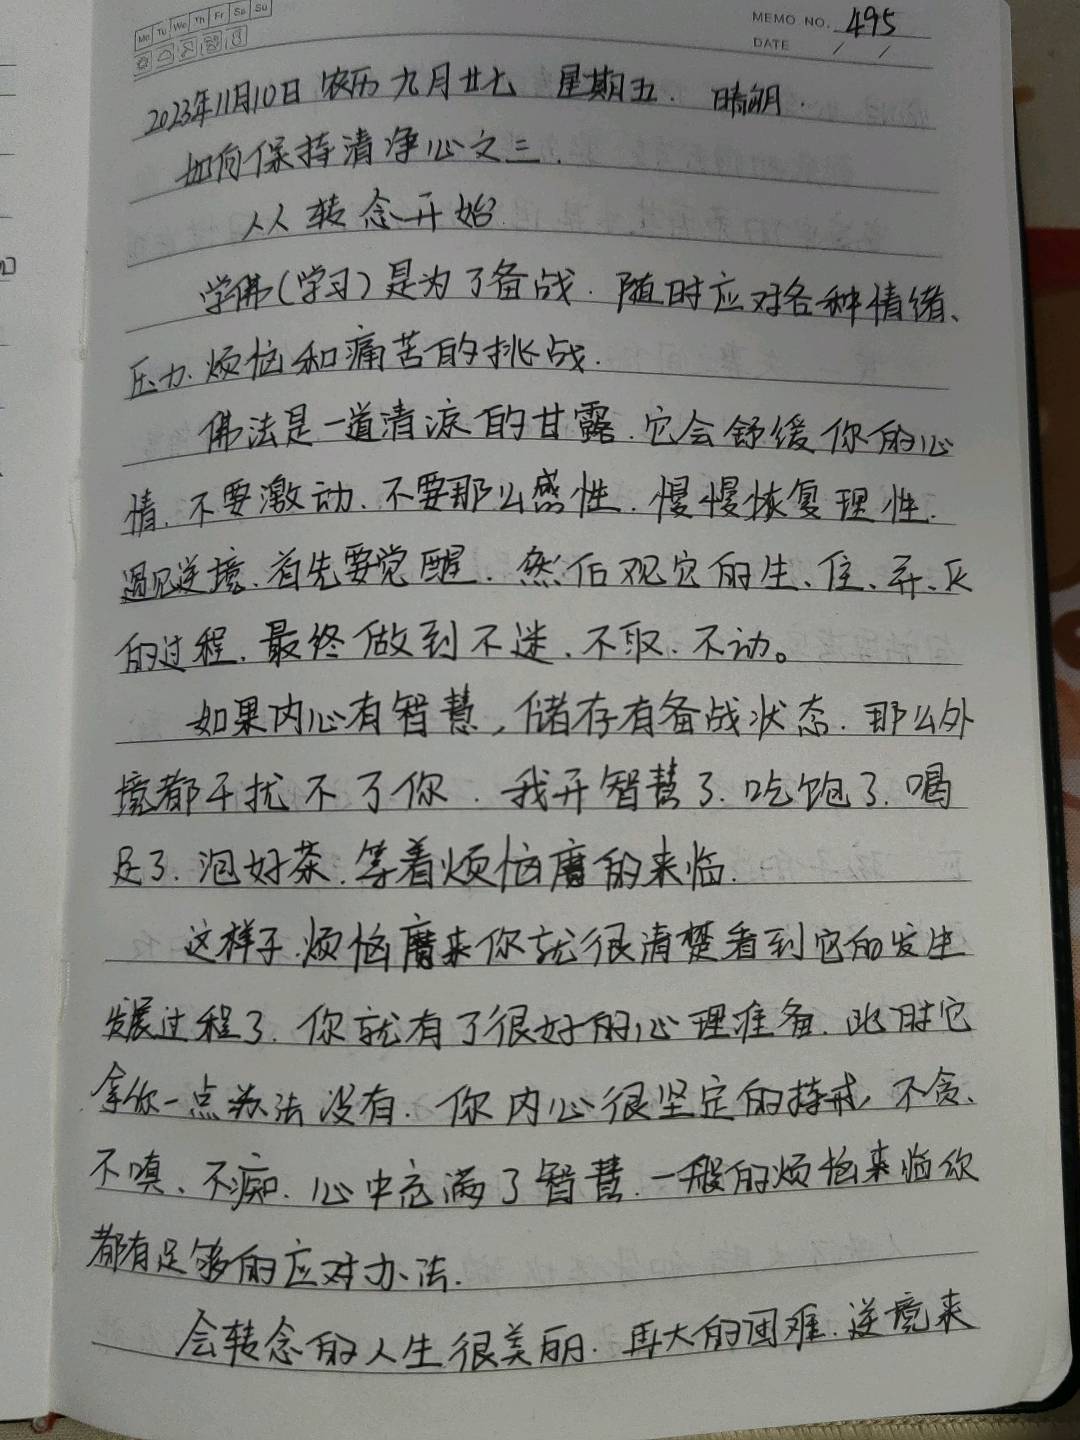 Mo Tu We Th Fr Sa Su
MEMO NO. 495
DATE / /
2023年11月10日 农历九月廿七 星期五. 晴朗.
如何保持清净心之三.
从转念开始.
学佛(学习)是为了备战.随时应对各种情绪、
压力.烦恼和痛苦的挑战.
佛法是一道清凉的甘露.它会舒缓你的心
情.不要激动.不要那么感性.慢慢恢复理性.
遇见逆境、首先要觉醒.然后观它的生、住、异、灭
的过程.最终做到不迷、不取、不动。
如果内心有智慧,储存有备战状态.那么外
境都干扰不了你.我开智慧了.吃饱了.喝
足了.泡好茶.等着烦恼魔的来临.
这样子.烦恼魔来你就很清楚看到它的发生
发展过程了.你就有了很好的心理准备.此时它
拿你一点办法没有.你内心很坚定的持戒,不贪、
不嗔、不痴.心中充满了智慧.一般的烦恼来临你
都有足够的应对办法.
会转念的人生很美丽.再大的困难.逆境来